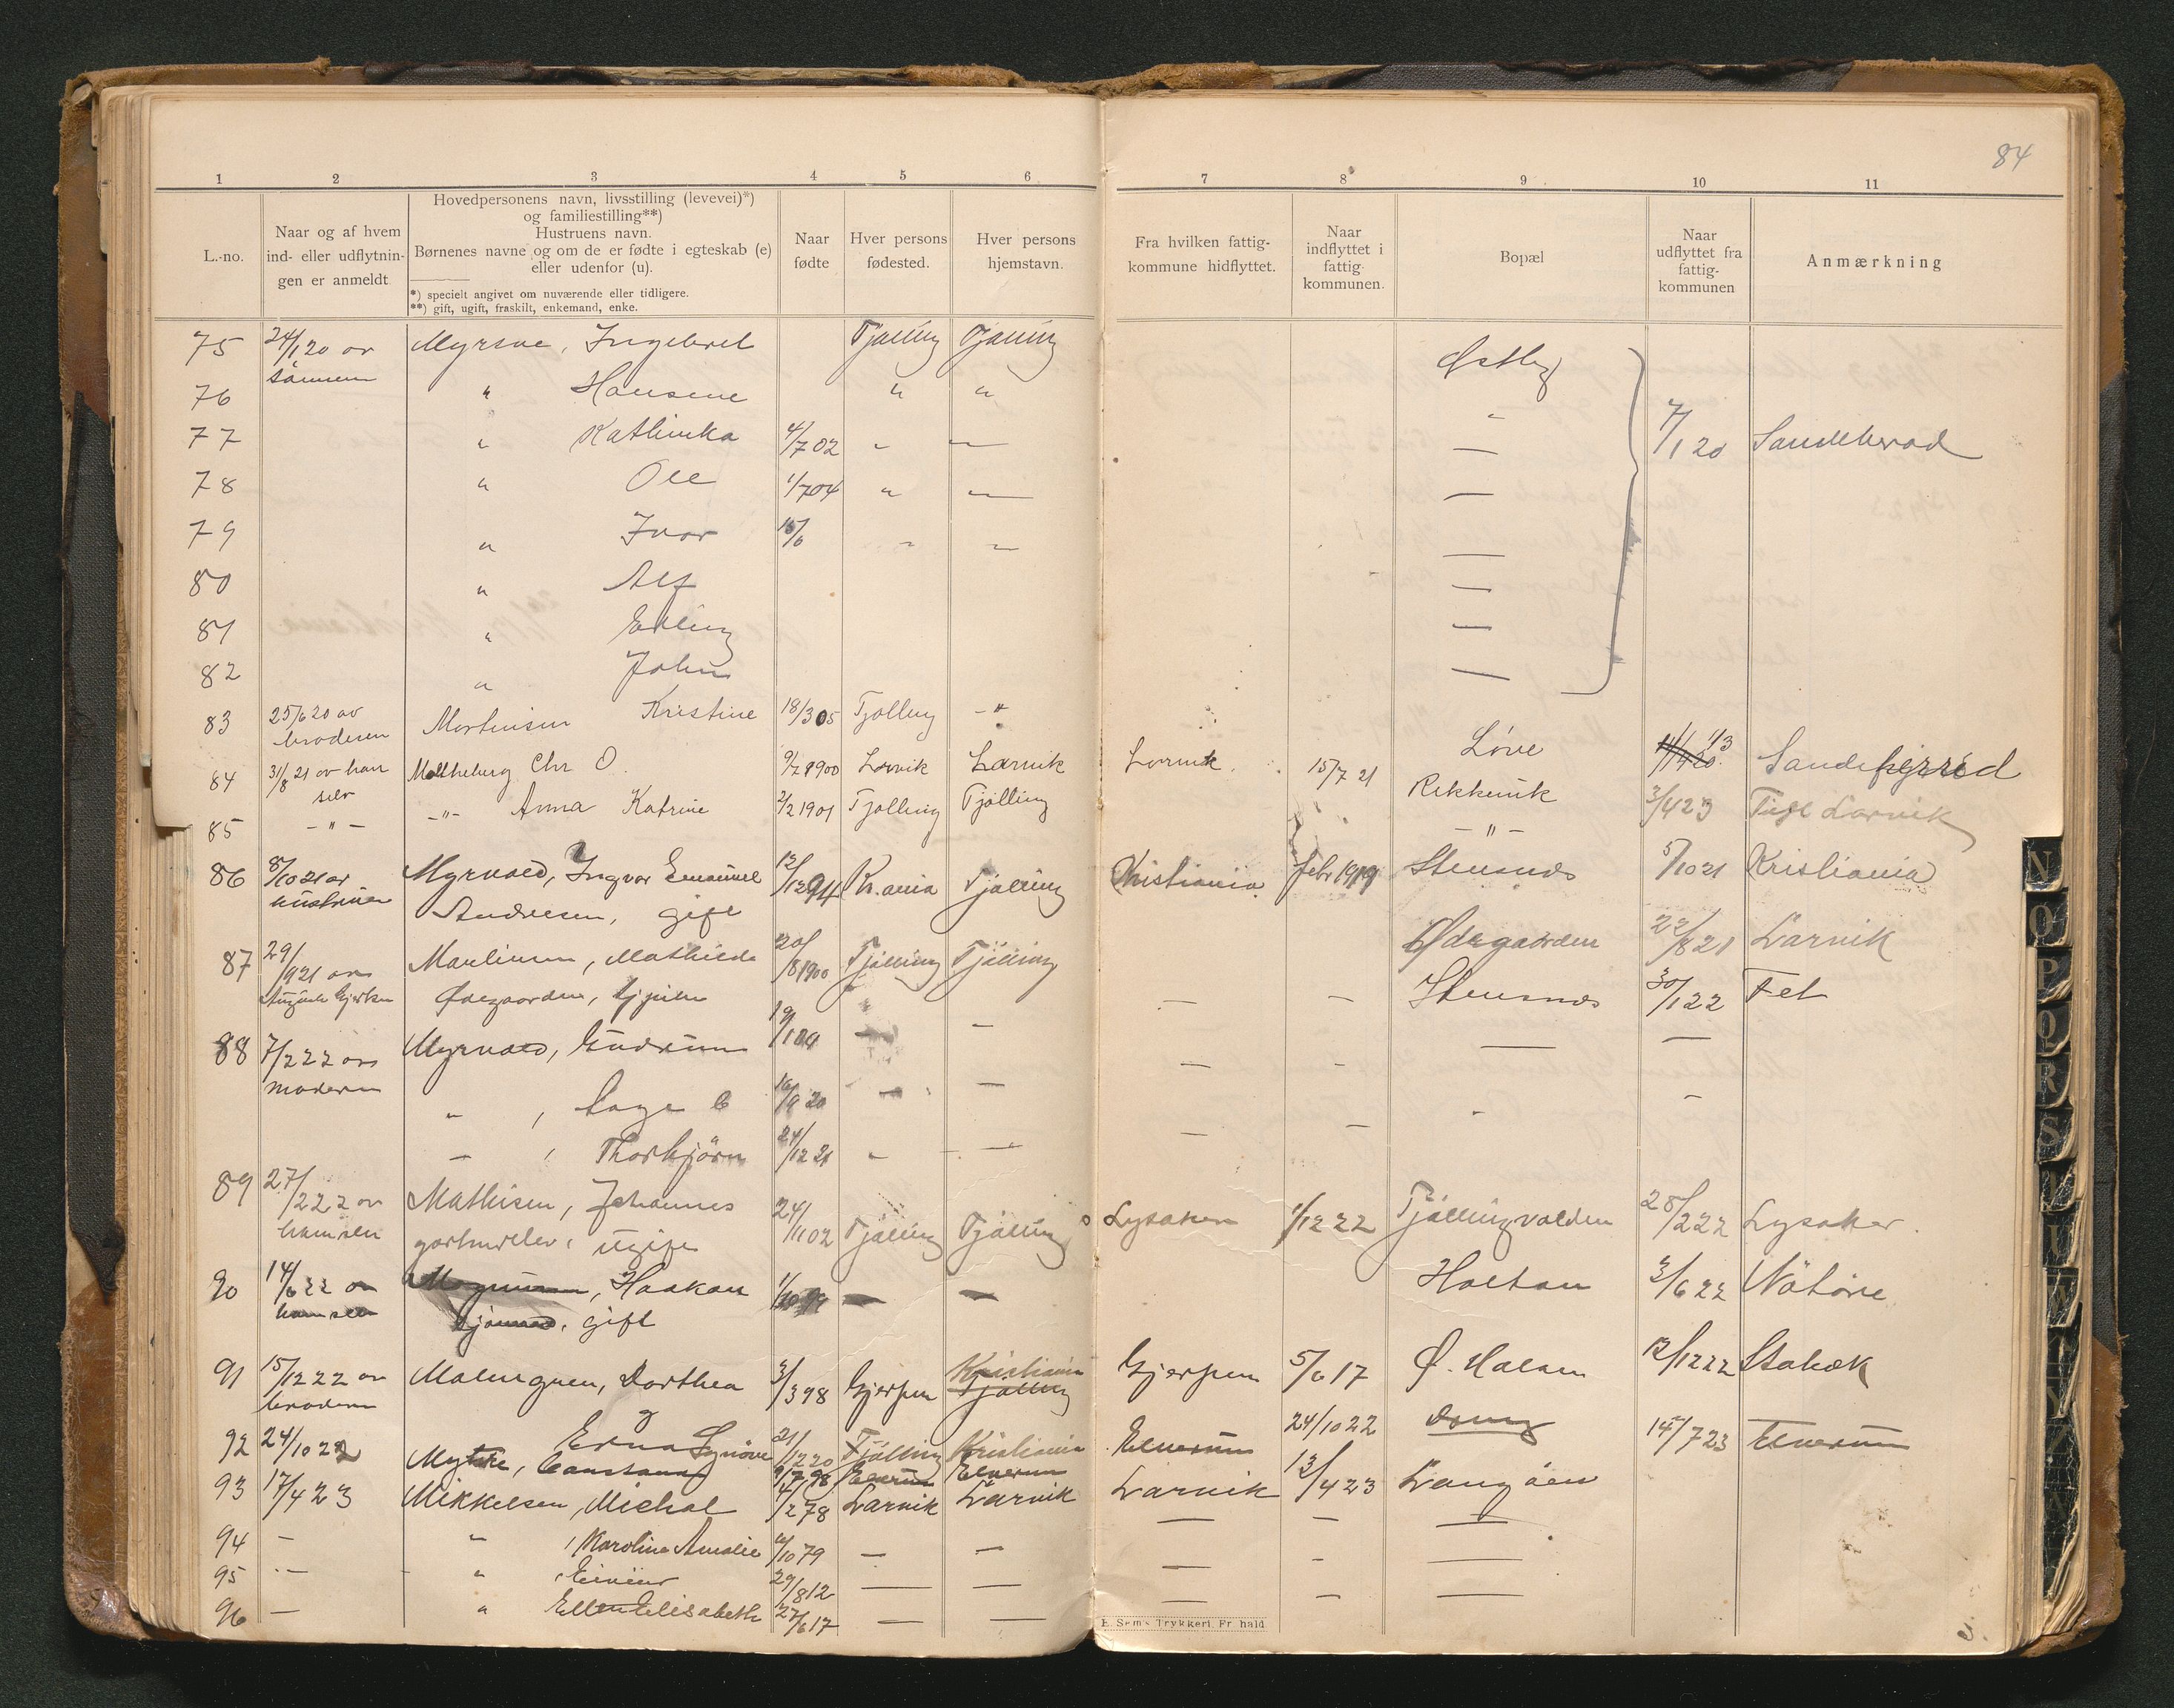 84
1 2 3 4 5 6 7 8 9 10 11
L.-no.
Naar og af hvem
ind- eller udflytnin-
gen er anmeldt
Hovedpersonens navn, livsstilling (levevei)*)
og familiestilling**)
Hustruens navn.
Børnenes navne og om de er fødte i egteskab (e)
eller udenfor (u).
*) specielt angivet om nuværende eller tidligere.
**) gift, ugift, fraskilt, enkemand, enke.
Naar
fødte
Hver persons
fødested.
Hver persons
hjemstavn.
Fra hvilken fattig-
kommune hidflyttet.
Naar
indflyttet i
fattig-
kommunen.
Bopæl
Naar
udflyttet fra
fattig-
kommunen
Anmærkning
75 24/1 20 av Myrsve, Ingebret Tjølling Tjølling Østby
sønnen
76 " Hansine " "
77 " Kathinka 4/7 02 " — — 7/1 20 Sandeherad
78 " Ole 1/7 04 " — —
79 " Ivar " — —
80 " Alf —
81 " Erling —
82 " John —
83 25/6 20 av Mortensen Kristine 18/3 05 Tjølling -"- Løve 1/3 Sandefjord
broderen
84 31/8 21 av han Moltheberg Chr O. 9/7 1900 Larvik Larvik Larvik 15/7 21 Rekkevik 3/4 23 Larvik
selv
85 -"- -"- Anna Katrine 2/2 1901 Tjølling Tjølling -"-
86 8/10 21 av Myrvold, Ingvar Emanuel 12/12 94 Kr.ania Tjølling Kristiania febr 1919 Stensnes 5/10 21 Kristiania
hustruen Andresen, gift
87 29/9 21 av Mathilde 20/8 1900 Tjølling Tjølling Ødegaarden 22/8 21 Larvik
Ødegaarden,
88 7/2 22 av Myrvold, Gudrun — — — — Stensnes 30/1 22 Fet
moderen
" , Aage 16/9 20 — — — — — —
— , Thorbjørn 24/12 21 " — — — " —
89 27/2 22 av Mathisen, Johannes 24/11 02 Tjølling Tjølling Lysaker 1/12 22 Tjøllingvolden 28/2 22 Lysaker.
ham selv ugift
90 14/6 22 av Haakon — — Holtan 3/6 22 Nøtterø
ham selv gift
91 15/12 22 av Malmgren, Dorthea 3/3 98 Gjerpen Kristiania Tjølling Gjerpen 5/6 17 Ø. Halsen 12/12 22 Stabæk
broderen
Erna Synøve 21/12 20 Tjølling Kristiania
92 24/10 22 9/7 98 Elverum Elverum Elverum 24/10 22 14/7 23 Elverum
93 17/4 23 Mikkelsen, Michal 4/2 78 Larvik Larvik Larvik 13/4 23 Langøen
94 — " , Karoline Amalie 6/10 79 — — — — —
95 — " , Einar 29/8 12 — — — — —
96 — " Ellen Elisabeth 27/6 17 — — — — —
E. Sem's Trykkeri, Fr.hald
N
O
P
Q
R
S
U
W
Y